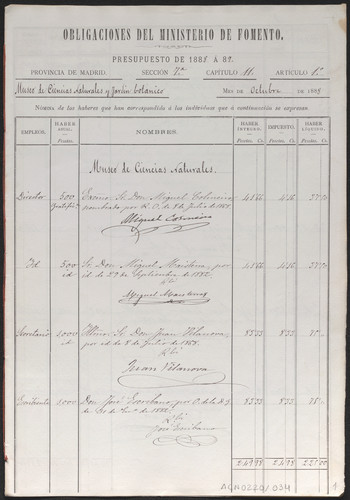 OBLIGACIONES DEL MINISTERIO DE FOMENTO.
PRESUPUESTO DE 1885 A 86.
PROVINCIA DE MADRID. SECCIÓN 7ª CAPÍTULO 11. ARTÍCULO 1º
Museo de Ciencias Naturales y Jardin botanico MES DE Octubre DE 1885
Nómina de los haberes que han correspondido á los individuos que á continuación se expresan.
EMPLEOS. HABER ANUAL. Pesetas. NOMBRES. HABER ÍNTEGRO. Pesetas. Cs. IMPUESTO. Pesetas. Cs. HABER LÍQUIDO. Pesetas. Cs.
Museo de Ciencias Naturales.
Director 500 Excmo Sr Don Miguel Colmeiro 41'66 4'16 37'50
nombrado por R. O. de 8 Julio de 1868.
Miguel Colmeiro
Id 500 Sr Don Miguel Maisterra, por 41'66 4'16 37'50
id id de 29 Septiembre de 1882.
Rbí
Miguel Maisterra
Secretario 1000 Iltmo Sr Don Juan Vilanova, 83'33 8'33 75"
id por id de 8 Julio de 1868.
Rbí
Juan Vilanova
1000 Don José 83'33 8'33 75"
de 1882.
Rbí
249'98 24'98 225'00
ACN0220/034
1